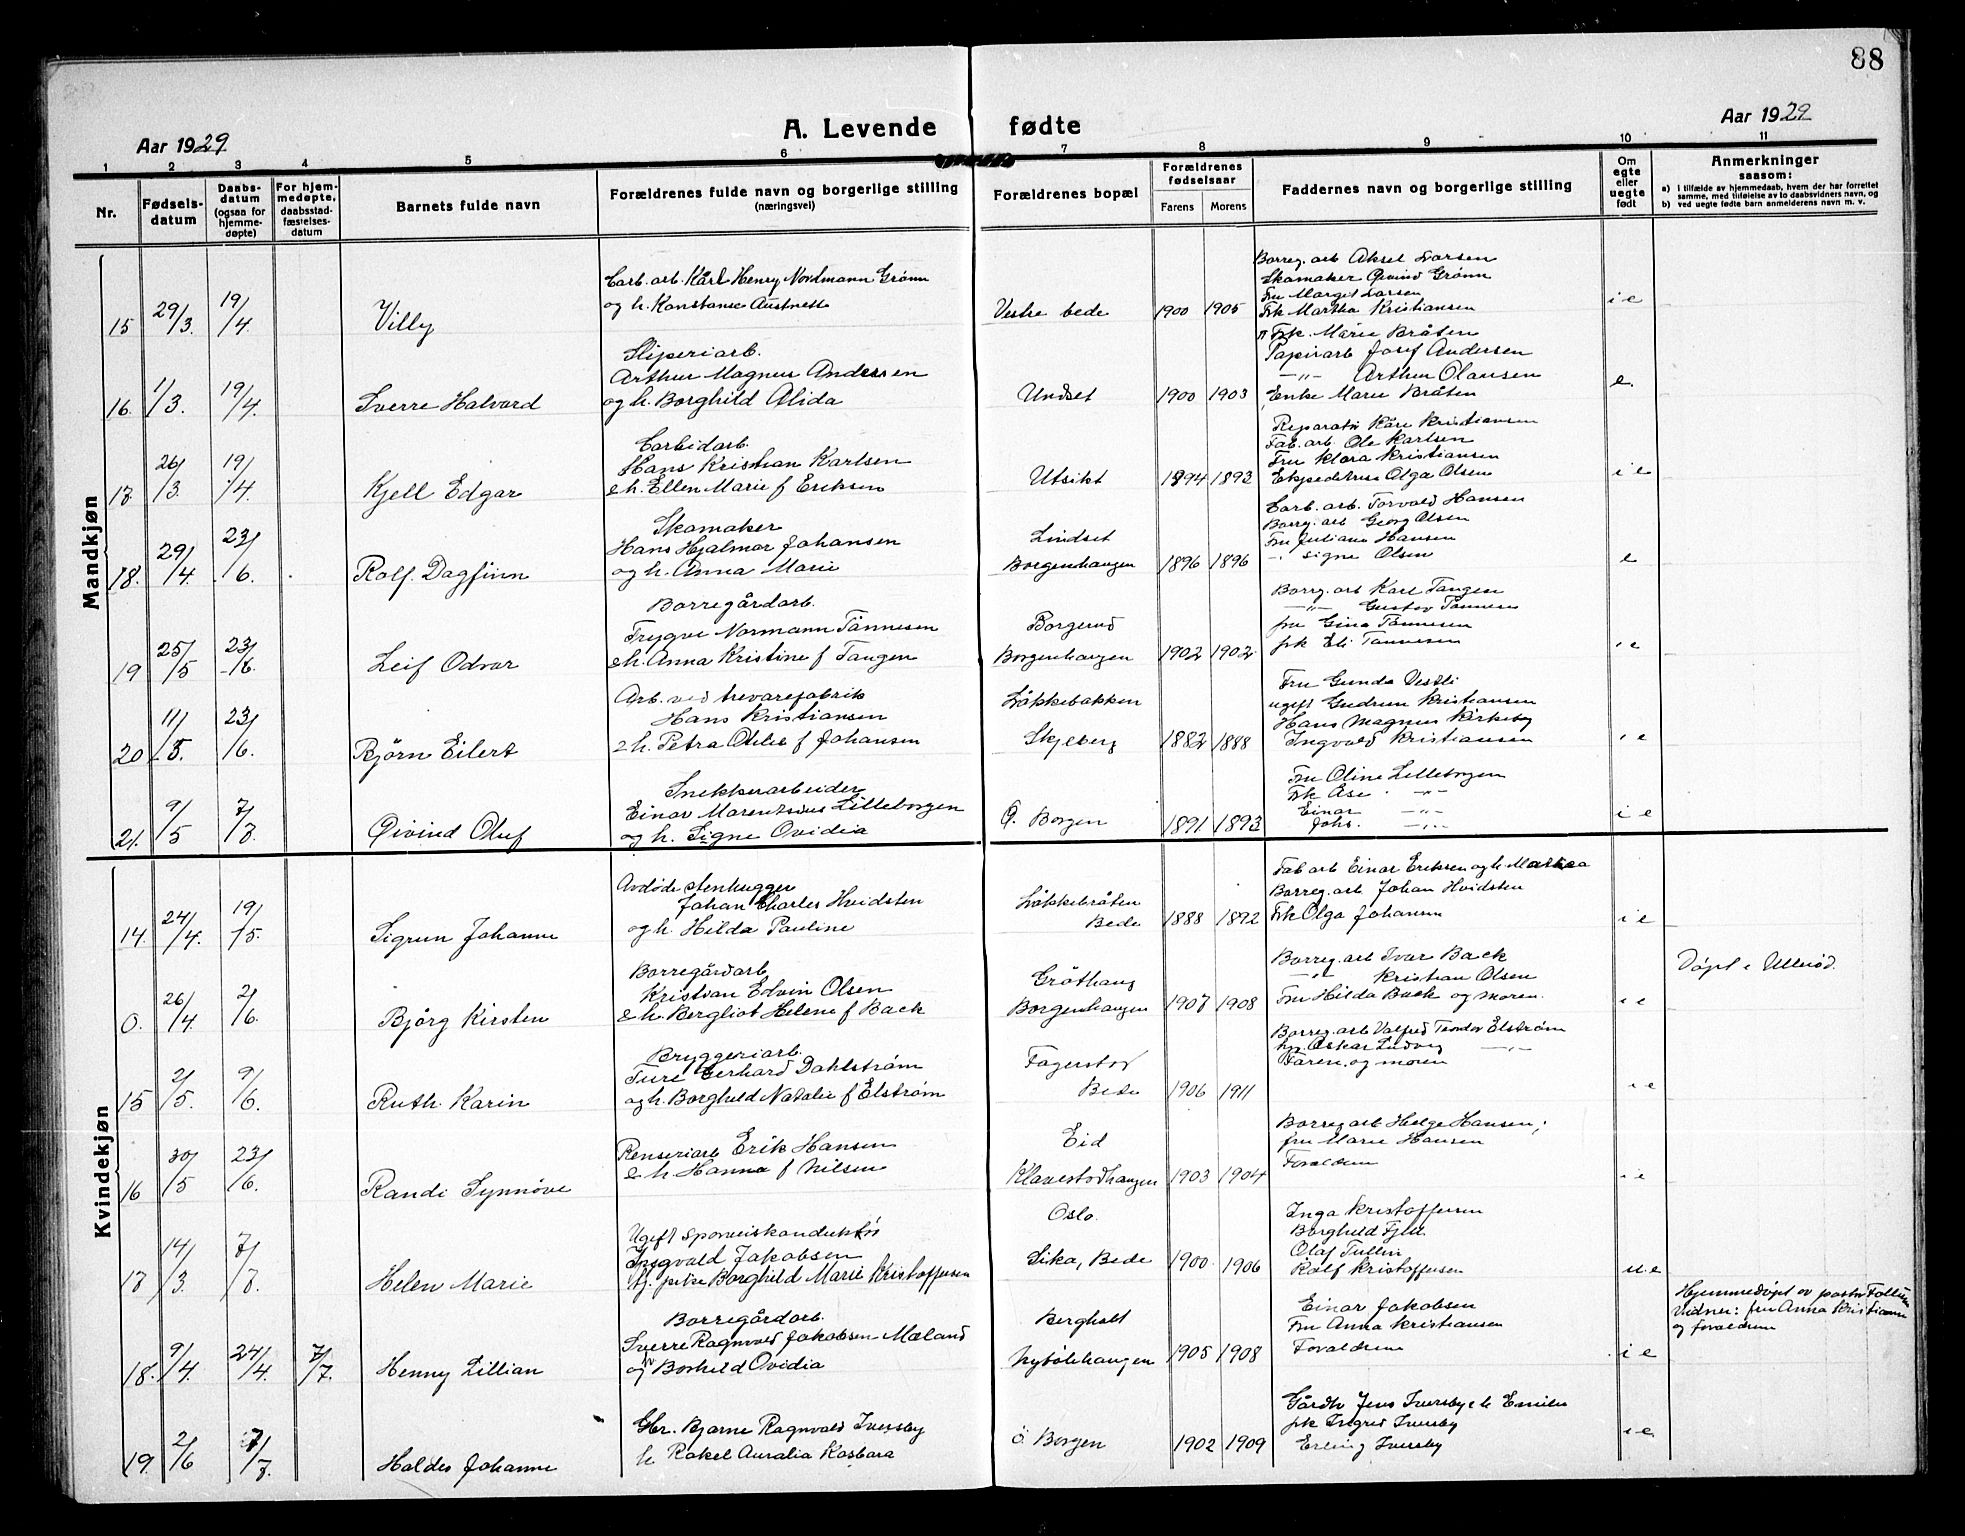 88
Aar 1929
A. Levende fødte
Aar 1929
1 2 3 4 5 6 7 8 9 10 11
Nr.
Fødselsdatum
Daabsdatum (ogsaa for hjemmedøpte)
For hjemmedøpte, daabsstadfæstelsesdatum
Barnets fulde navn
Forældrenes fulde navn og borgerlige stilling
(næringsvei)
Forældrenes bopæl
Forældrenes fødselsaar
Farens Morens
Faddernes navn og borgerlige stilling
Om egte eller uegte født
Anmerkninger
saasom:
a) i tilfælde av hjemmedaab, hvem der har forrettet samme, med tilføielse av to daabsvidners navn, og
b) ved uegte fødte barn anmelderens navn m. v.
Mandkjøn
15 29/3. 19/4 Villy
Carb. arb. Karl Henry Nordmann Grønn
og h. Konstanse Austness
Vestre bede 1900 1905
Borreg. arb Aksel Larsen
Skomaker Øivind Grønn
Fru Margit Larsen
Frk Martha Kristiansen
i e
16. 1/3. 19/4. Sverre Halvard
Sliperiarb.
Arthur Magnus Andersen
og h. Borghild Alida
Undset 1900 1903
Frk. Marie Bråten
Papirarb Josef Andersen
—„— Arthur Olausen
Enke Marie Bråten
e.
17 26/3 19/4. Kjell Edgar
Carbidarb.
Hans Kristian Karlsen
& h. Ellen Marie f Eriksen
Utsikt 1894 1893
Reparatør Kåre Kristiansen
Fab. arb Ole Karlsen
Fru Klara Kristiansen
Ekspeditrise Olga Olsen
i e
18. 29/4 23/6. Rolf Dagfinn
Skomaker
Hans Hjalmar Johansen
og h. Anna Marie
Lindset
Borgenhaugen 1896 1896
Carb. arb. Torvald Hansen
Borreg. arb Georg Olsen
Fru Juliane Hansen
Signe Olsen
e
19 25/5 23/6. Leif Odvar
Borregårdarb.
Trygve Normann Tønnesen
& h. Anna Kristine f Tangen
Borgerud
Borgenhaugen 1902 1902
Borreg. arb Karl Tangen
—„— Gustav Tønnesen
fru Gina Tønnesen
frk Eli Tønnesen
i e
20 11/5. 23/6. Bjørn Eilert
Arb. ved trevarefabrik
Hans Kristiansen
& h. Petra Otilie f Johansen
Løkkebakken
Skjeberg 1882 1888
Fru Gunda Vestli
ugift Gudrun Kristiansen
Hans Magnus Kirkeby
Ingvald Kristiansen
i e
21. 9/5 7/7. Øivind Oluf
Snekkerarbeider
Einar Marentzius Lilleborgen
og h. Signe Ovidia
Ø. Borgen 1891 1893
Fru Oline Lilleborgen
Frk Åse —„—
Einar —„—
Johs. —„—
i e
Kvindekjøn
14. 24/4. 19/5. Sigrun Johanne
Avdøde stenhugger
Johan Charles Hvidsten
og h. Hilda Pauline
Løkkebråten
Bede 1888 1892
Fab arb Einar Eriksen og h. Martea
Borreg. arb Johan Hvidsten
Frk Olga Johansen
i e
0. 26/4 2/6. Bjørg Kirsten
Borregårdarb
Kristian Edvin Olsen
& h. Bergliot Helene f Back
Grøthaug
Borgenhaugen 1907 1908
Borreg. arb Ivar Back
—„— Kristian Olsen
Fru Hilda Back og moren.
i e
Døpt i Ullerød.
15 2/5. 9/6. Ruth Karin
Bryggeriarb.
Ture Gerhard Dahlstrøm
og h. Borghild Natalie f Elstrøm
Fagertor
Bede 1906 1911
Borreg. arb Valfred Teodor Elstrøm
Oskar Ludvig —„—
Faren og moren
i e
16 30/5 23/6. Randi Synnøve
Renseriarb Erik Hansen
& h. Hanna f Nilsen
Eid
Klavestadhaugen 1903 1904
Borreg arb Helge Hansen;
fru Marie Hansen
Foreldrene
i e
17 14/3. 7/7. Helen Marie
Ugift Sporveiskonduktør
Ingvald Jakobsen
Borghild Marie Kristoffersen
Oslo.
Sika, Bede 1900 1906
Inga Kristoffersen
Borghild Fjeld
Olaf Tullin
Rolf Kristoffersen
u e
18. 9/4. 24/4. 7/7. Henny Lillian
Borregårdarb.
Sverre Ragnvald Jakobsen Mæland
og h Borhild Ovidia
Bergholt
Nybølehaugen 1905 1908
Einar Jakobsen
Fru Anna Kristiansen
Foreldrene
i e
Hjemmedøpt av pastor
Vidner: fru Anna Kristiansen
og foreldrene
19. 2/6 7/7. Haldis Johanne
Gbr. Bjarne Ragnvald Iversby
h Rakel Auralia Kasbara
ö. Borgen 1902 1909
Gårdbr Jens Iversby & h Emilie
frk Ingrid Iversby
Erling Iversby
i e